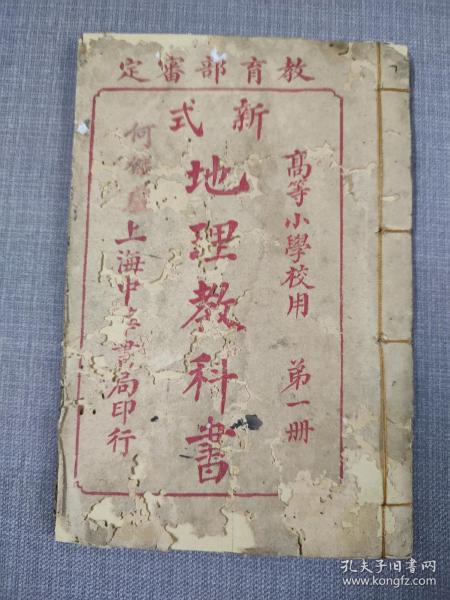 教育部審定
高等小學校用 第一册
新式
地理教科書
上海中華書局印行
何
孔夫子旧书网
www.kongfz.com